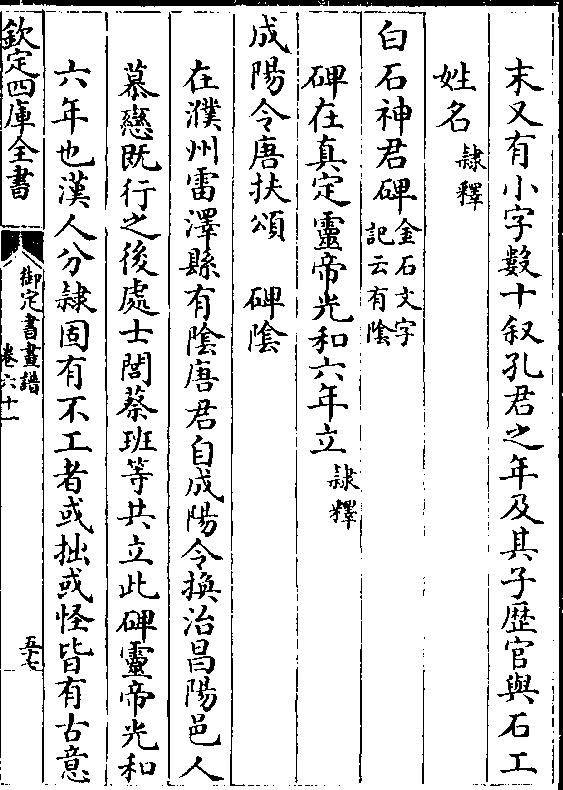 末又有小字數十叙孔君之年及其子歴官與石工
姓名隸釋
白石神君碑金石文字記云有陰
碑在真定靈帝光和六年立隸釋
成陽令唐扶頌 碑陰
在濮州雷澤縣有陰唐君自成陽令換治昌陽邑人
慕戀既行之後處士閭葵班等共立此碑靈帝光和
六年也漢人分隸固有不工者或拙或怪皆有古意
欽定四庫全書
御定書畫譜
卷六十一
五十七